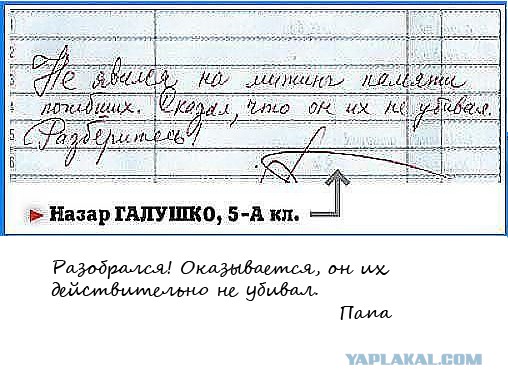 1
2
Не явился на митинг памяти
3
погибших. Сказал, что он их не убивал.
4
(Разберитесь)
5
6
► Назар ГАЛУШКО, 5-А кл.
Разобрался! Оказывается, он их
действительно не убивал.
Папа
YAPLAKAL.COM